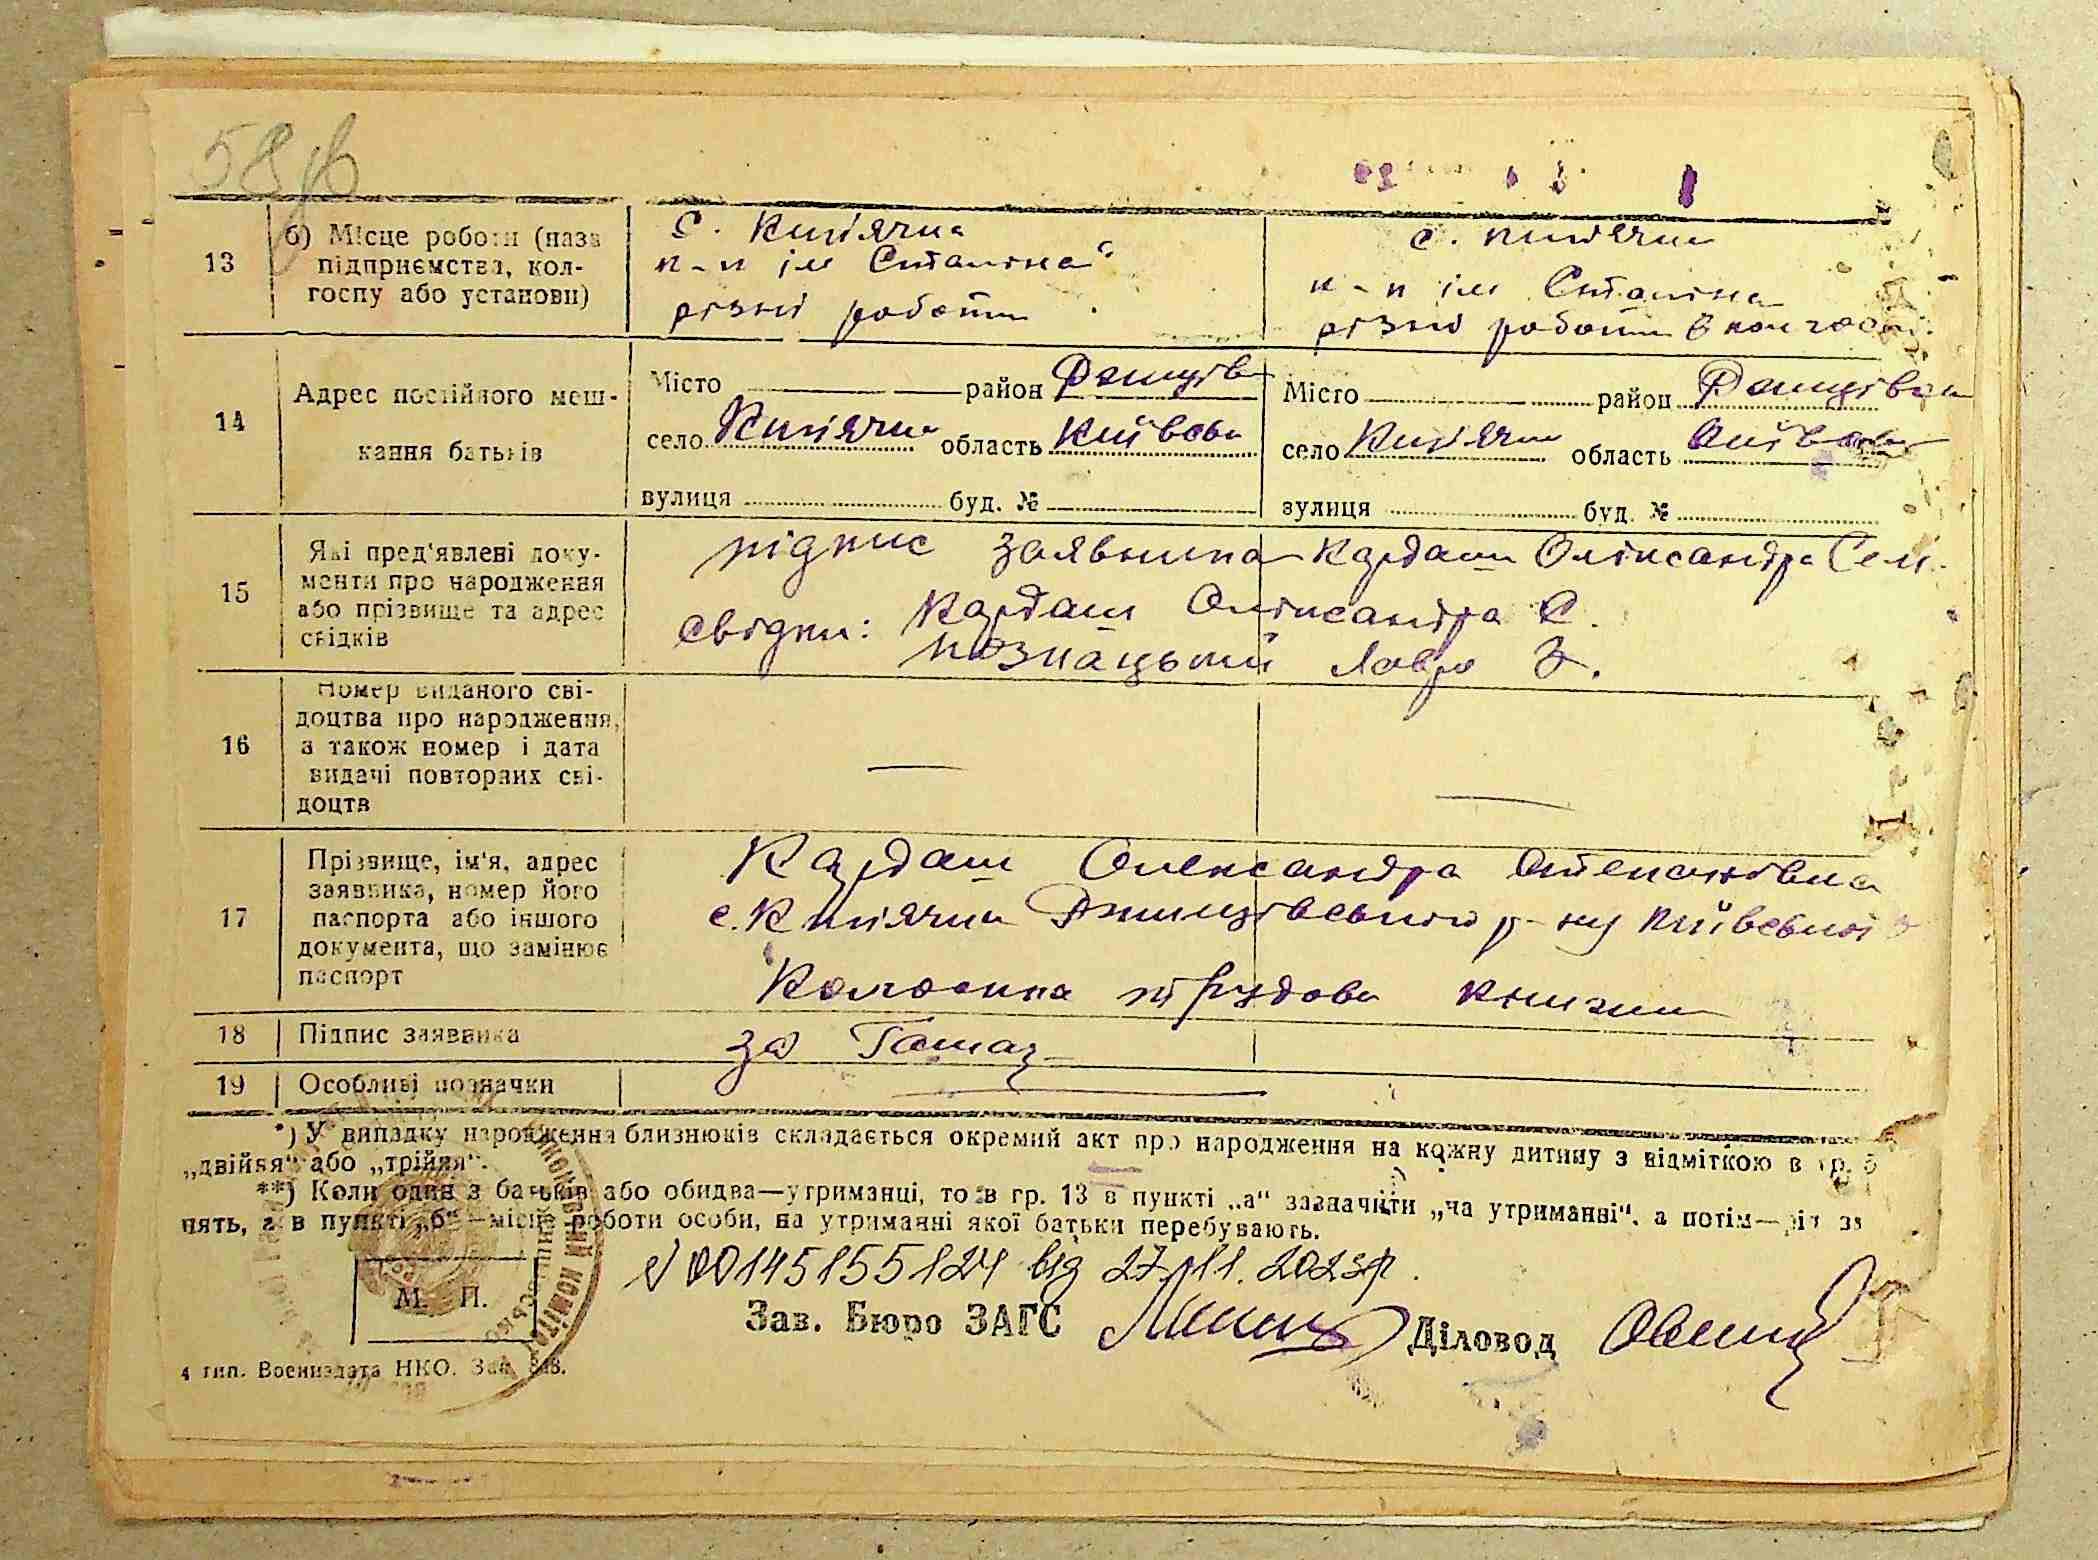 58
13
б) Місце роботи (назва підприємства, колгоспу або установи)
с. Кип'ячка
к-п ім Сталіна
різні роботи
с. Кип'ячка
к-п ім Сталіна
різні роботи в колгоспі
14
Адрес постійного меш-
кання батьків
Місто район
село Кип'ячка область Київська
вулиця буд. №
Місто район
село Кип'ячка область
вулиця буд. №
15
Які пред'явлені доку-
менти про народження
або прізвище та адрес
свідків
підпис заявника Кардаш Оліксандра
свідки: Кардаш Оліксандра С.
Познацький Лавро З.
16
Номер виданого сві-
доцтва про народження,
а також номер і дата
видачі повторних сві-
доцтв
17
Прізвище, ім'я, адрес
заявника, номер його
паспорта або іншого
документа, що замінює
паспорт
Кардаш Олександра Степанівна
с. Кип'ячка р-ну Київської
трудова книжка
18
Підпис заявника
за
19
Особливі позначки
*) У випадку народження близнюків складається окремий акт про народження на кожну дитину з відміткою в гр. 5
„двійня“ або „трійня“.
**) Коли один з батьків або обидва—утриманці, то в гр. 13 в пункті „а“ зазначити „на утриманні“, а потім—
в пункті „б“—місце роботи особи, на утриманні якої батьки перебувають.
№00145155124 від 27.11.2023р.
М. П.
Зав. Бюро ЗАГС
Діловод
4 тип. Воениздата НКО. Зак.